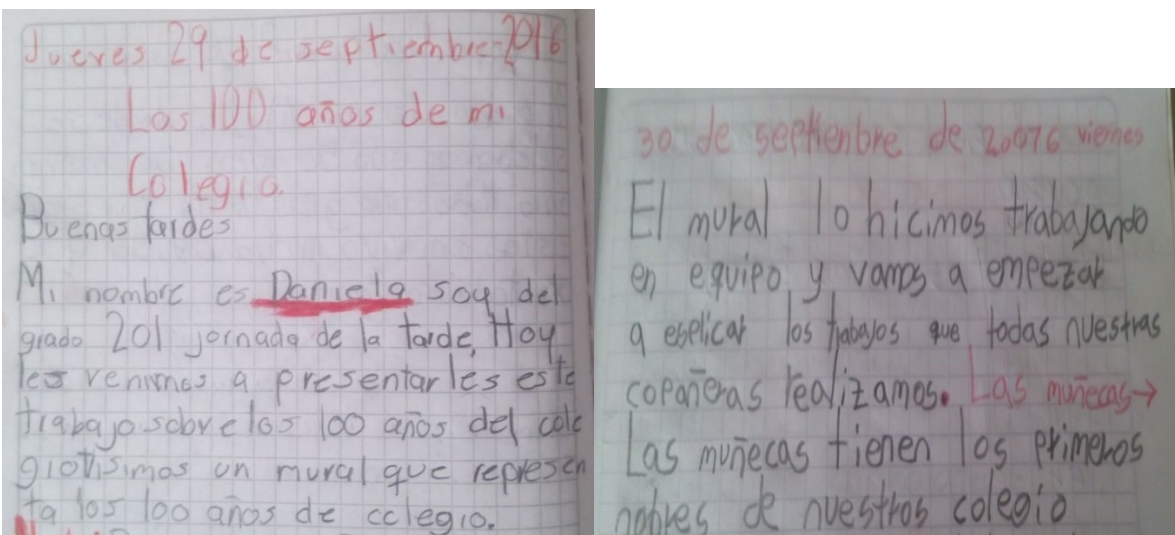 Jueves 29 de septiembre-2016
Los 100 años de mi
Colegio.
Buenas tardes
Mi nombre es Daniela soy del
grado 201 jornada de la tarde, Hoy
les venimos a presentarles este
trabajo sobre los 100 años del cole
giovisimos un mural que represen
ta los 100 años de colegio.
30 de septienbre de 20076 viernes
El mural lo hicimos trabajando
en equipo y vamos a empezar
a esplicar los trabajos que todas nuestras
copañeras realizamos. Las muñecas→
Las muñecas tienen los primeros
nobres de nuestros colegio